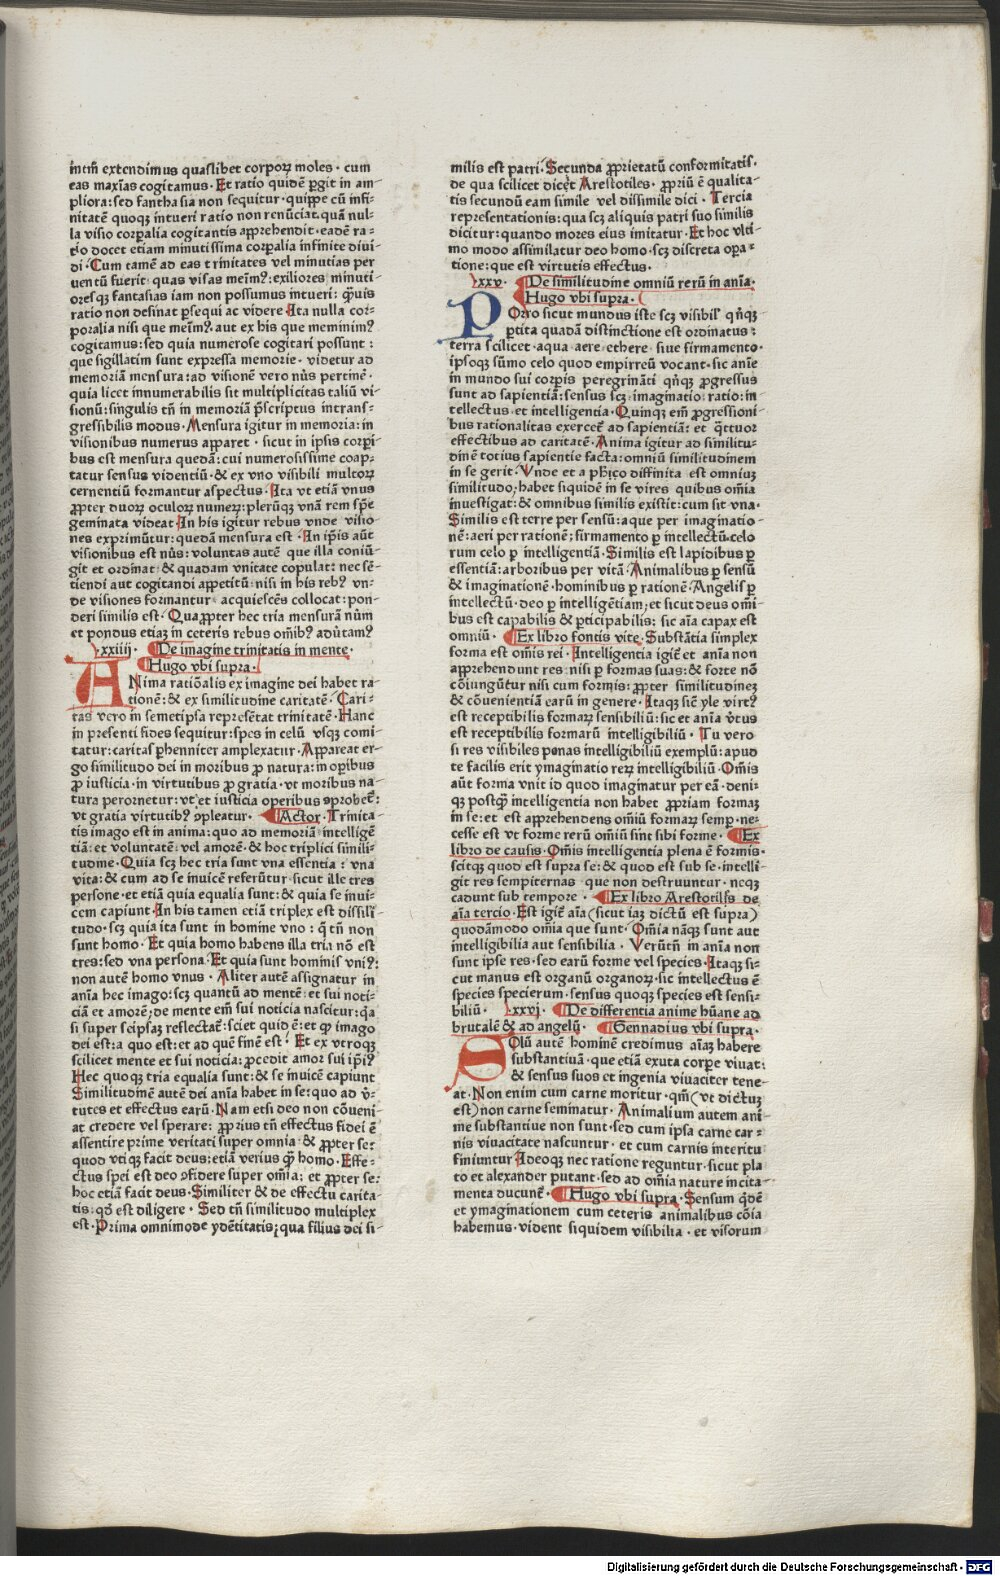 intm̄ extendimus quaslibet corporꝝ moles · cum
eas maxīas cogitamus · Et ratio quidē ꝑgit in am⸗
pliora: sed fanthasia non sequitur · quippe cū infi⸗
nitatē quoqꝫ intueri ratio non renūciat. quā nul⸗
la visio corꝑalia cogitantis apprehendit · eadē ra⸗
tio docet etiam minutissima corꝑalia infinite diui
di · Cum tamē ad eas trinitates vel minutias per
uentū fuerit · quas visas meīmꝰ: exiliores minuti⸗
oresqꝫ fantasias iam non possumus intueri: qͣuis
ratio non desinat ꝑsequi ac videre Ita nulla cor⸗
poralia nisi que meīmꝰ. aut ex his que meminimꝰ
cogitamus: sed quia numerose cogitari possunt:
que sigillatim sunt expressa memorie · videtur ad
memoriā mensura: ad visionē vero nūs pertinē ·
quia licet innumerabilis sit multiplicitas taliū vi⸗
sionū: singulis tn̄ in memoriā p̄scriptus intrans⸗
gressibilis modus · Mensura igitur in memoria: in
visionibus numerus apparet · sicut in ipsis corꝑi
bus est mensura quedā: cui numerosissime coap⸗
tatur sensus videntiū · & ex vno visibili multoꝝ
cernentiū formantur aspectus · Ita vt etiā vnus
ꝓpter duoꝝ oculoꝝ numeꝝ: plerūqꝫ vnā rem sp̄e
geminata videat In his igitur rebus vnde visio⸗
nes exprimūtur: quedā mensura est · In ip̄is aūt
visionibus est nūs: voluntas autē que illa coniū⸗
git et ordinat · & quadam vnitate copulat: nec sē⸗
tiendi aut cogitandi appetitū · nisi in his rebꝰ vn⸗
de visiones formantur acquiescēs collocat: pon⸗
deri similis est · Quapꝓpter hec tria mensurā nūm
et pondus etiaꝫ in ceteris rebus om̄ibꝰ adūtamꝰ
xxiiij · De imagine trinitatis in mente ·
Hugo vbi supra ·
ANima ratiōalis ex imagine dei habet ra⸗
tionē: & ex similitudine caritatē · Cari⸗
tas vero in semetipsa represētat trinitatē · Hanc
in presenti fides sequitur: spes in celū vsqꝫ comi⸗
tatur: caritas ꝑhenniter amplexatur · Appareat er⸗
go similitudo dei in moribus ꝓ natura: in oꝑibus
ꝓ iusticia · in virtutibus ꝓ gratia · vt moribus na⸗
tura perornetur: vt et iusticia operibus ꝯprobet̄:
vt gratia virtutibꝰ ꝯpleatur · Actor · Trinita⸗
tis imago est in anima: quo ad memoriā intelligē
tiā: et voluntatē: vel amorē · & hoc triplici simili⸗
tudine · Quia scꝫ hec tria sunt vna essentia: vna
vita: & cum ad se inuicē referūtur · sicut ille tres
persone · et etiā quia equalia sunt: & quia se inui⸗
cem capiunt · In his tamen etiā triplex est dissili⸗
tudo · scꝫ quia ita sunt in homine vno: qͣ tn̄ non
sunt homo · Et quia homo habens illa tria nō est
tres: sed vna persona · Et quia sunt hominis vniꝰ:
non autē homo vnus · Aliter autē assignatur in
anīa hec imago: scꝫ quantū ad mentē: et sui noti⸗
ciā et amorē; de mente em̄ sui noticia nascitur: qͣa
si super seipsaꝫ reflectat̄: sciet quid ē: et qͣ imago
dei est: a quo est: et ad quē finē est · Et ex vtroqꝫ
scilicet mente et sui noticia: ꝓcedit amoꝛ sui ip̄iꝰ
Hec quoqꝫ tria equalia sunt: & se inuicē capiunt
Similitudinē autē dei anīa habet in se: quo ad v̄⸗
tutes et effectus earū · Nam etsi deo non cōueni⸗
at credere vel sperare: ꝓprius tn̄ effectus fidei ē
assentire prime veritati super omnia · & ꝓpter se:
quod vtiqꝫ facit deus: etiā verius qͣ homo · Effe⸗
ctus spei est deo ꝯfidere super om̄ia: et ꝓpter se:
hoc etiā facit deus · Similiter & de effectu carita⸗
tis: qd̄ est diligere · Sed tn̄ similitudo multiplex
est · Prima omnimode ydētitatis; qua filius dei si⸗
milis est patri · Secunda ꝓprietatū conformitatis ·
de qua scilicet dicet Arestotiles · ꝓpriū ē qualita⸗
tis secundū eam simile vel dissimile dici · Tercia
representationis: qua scꝫ aliquis patri suo similis
dicitur: quando mores eius imitatur · Et hoc vlti⸗
mo modo assimilatur deo homo · scꝫ discreta oꝑa⸗
tione: que est virtutis effectus ·
xxv · De similitudine omniū rerū in anīa ·
Hugo vbi supra ·
POrro sicut mundus iste scꝫ visibilꝭ qn̄qꝫ
ꝑtita quadā distinctione est ordinatus:
terra scilicet · aqua · aere · ethere siue firmamento ·
ipsoqꝫ sūmo celo quod empirreū vocant · sic anīe
in mundo sui corꝑis peregrināti qn̄qꝫ ꝓgressus
sunt ad sapientiā: sensus scꝫ imaginatio: ratio: in
tellectus · et intelligentia · Quinqꝫ em̄ ꝓgressioni⸗
bus rationalitas exercet̄ ad sapientiā: et qͣttuor
effectibus ad caritatē · Anima igitur ad similitu⸗
dinē totius sapientie facta: omniū similitudinem
in se gerit · Vnde et a ph̄ico diffinita est omniuꝫ
similitudo; habet siquidē in se vires quibus om̄ia
inuestigat: & omnibus similis existit: cum sit vna ·
Similis est terre per sensū: aque per imaginatio⸗
nē: aeri per rationē; firmamento ꝑ intellectū celo
rum celo ꝑ intelligentiā · Similis est lapidibus ꝑ
essentiā: arboribus per vitā · Animalibus ꝑ sensū
& imaginationē · hominibus ꝑ rationē · Angelis ꝑ
intellectū · deo ꝑ intelligētiam; et sicut deus om̄i
bus est capabilis & ꝑticipabilis: sic aīa capax est
omniū · Ex libro fontis vite · Substātia simplex
forma est om̄is rei · Intelligentia igit̄ et anīa non
apprehendunt res nisi ꝑ formas suas: & forte nō
cōiungūtur nisi cum formis: ꝓpter similitudineꝫ
& cōuenientiā earū in genere · Itaqꝫ siē yle virtꝰ
est receptibilis formaꝝ sensibiliū: sic et anīa v̄tus
est receptibilis formarū intelligibiliū · Tu vero
si res visibiles ponas intelligibiliū exemplū: apud
te facilis erit ymaginatio reꝝ intelligibiliū · Om̄is
aūt forma vnit id quod imaginatur per eā · deni⸗
qꝫ postqͣ intelligentia non habet ꝓpriam formaꝫ
in se: et est apprehendens om̄iū formaꝝ semꝑ · ne⸗
cesse est vt forme rerū om̄iū sint sibi forme · Ex
libro de causis · Om̄is intelligentia plena ē formis ·
scitqꝫ quod est supra se: & quod est sub se · intelli⸗
git res sempiternas que non destruuntur · neqꝫ
cadunt sub tempore · Ex libro Arestotilis de
aīa tercio · Est igit̄ aīa (sicut iaꝫ dictū est supra)
quodāmodo om̄ia que sunt · Om̄ia nāqꝫ sunt aut
intelligibilia aut sensibilia · Verūtn̄ in anīa non
sunt ipse res · sed earū forme vel species · Itaqꝫ si⸗
cut manus est organū organoꝝ · sic intellectus ē
species specierum · sensus quoqꝫ species est sensi⸗
biliū · xxvj · De differentia anime hūane ad
brutalē & ad angelū · Gennadius vbi supra ·
SOlū autē hominē credimus aīaꝫ habere
substantiuā · que etiā exuta corꝑe viuat:
& sensus suos et ingenia viuaciter tene⸗
at · Non enim cum carne moritur · qm̄ (vt dictuꝫ
est) non carne seminatur · Animalium autem ani⸗
me substantiue non sunt · sed cum ipsa carne car⸗
nis viuacitate nascuntur · et cum carnis interitu
finiuntur Ideoqꝫ nec ratione reguntur · sicut pla
to et alexander putant · sed ad om̄ia nature incita⸗
menta ducunt̄ · Hugo vbi supra · Sensum qͥdē
et ymaginationem cum ceteris animalibus cōia
habemus · vident siquidem visibilia · et visorum
Digitalisierung gefördert durch die Deutsche Forschungsgemeinschaft · DFG